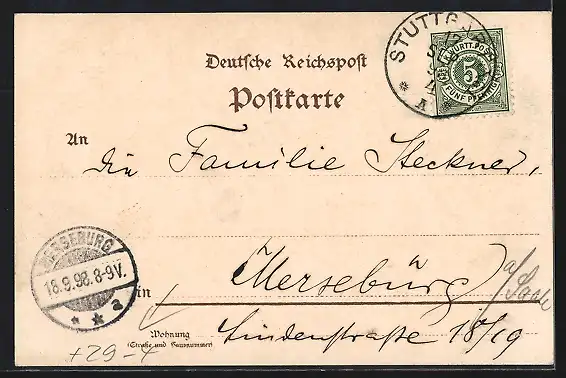 STUTTGART
K. WÜRTT. POST
5
FÜNF PFENNIG
Deutsche Reichspost
Postkarte
An
die Familie Steckner,
MERSEBURG
18.9.98.8-9V.
* * a
in Merseburg a/Saale
Wohnung
(Straße und Hausnummer)
Lindenstraße 18/19
+29-4